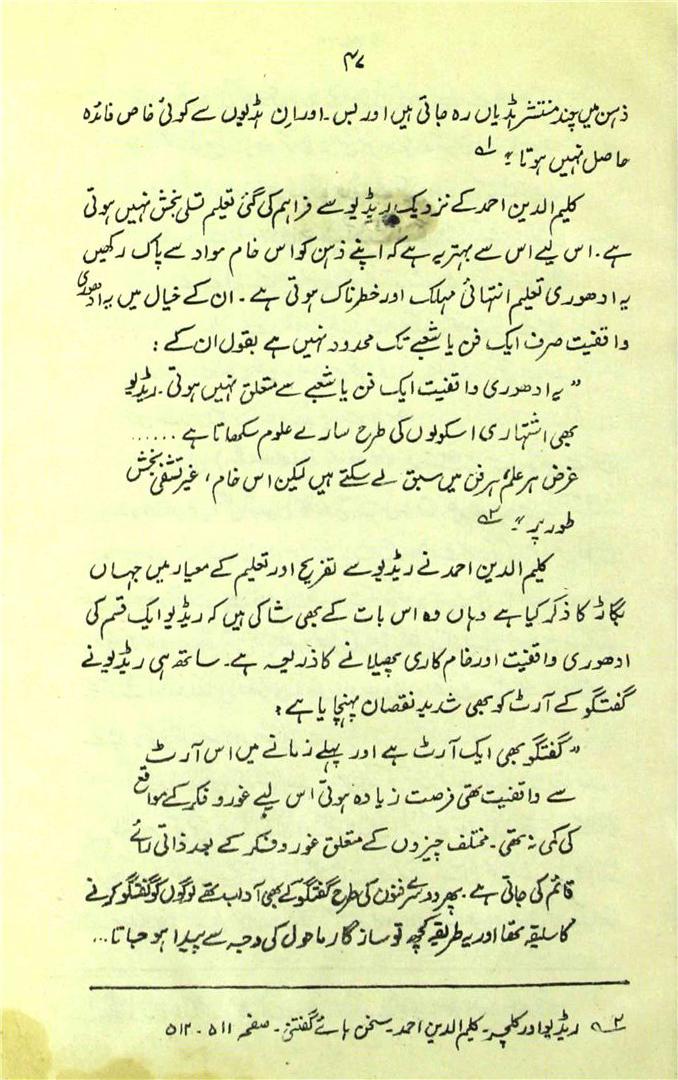 ۴۷
ذہن میں چند منتشر ہڈیاں رہ جاتی ہیں اور بس۔ اور ان ہڈیوں سے کوئی خاص فائدہ
حاصل نہیں ہوتا" ۱؎
کلیم الدین احمد کے نزدیک ریڈیو سے فراہم کی گئی تعلیم تسلی بخش نہیں ہوتی
ہے۔ اس لیے اس سے بہتر یہ ہے کہ اپنے ذہن کو اس خام مواد سے پاک رکھیں
یہ ادھوری تعلیم انتہائی مہلک اور خطرناک ہوتی ہے۔ ان کے خیال میں یہ ادھوری
واقفیت صرف ایک فن یا شعبے تک محدود نہیں ہے بقول ان کے :
" یہ ادھوری واقفیت ایک فن یا شعبے سے متعلق نہیں ہوتی۔ ریڈیو
بھی اشتہاری اسکولوں کی طرح سارے علوم سکھاتا ہے ......
غرض ہر علم ہر فن میں سبق لے سکتے ہیں لیکن اس خام، غیر تشفی بخش
طور پر" ۲؎
کلیم الدین احمد نے ریڈیو سے تفریح اور تعلیم کے معیار میں جہاں
بگاڑ کا ذکر کیا ہے وہاں وہ اس بات کے بھی شاکی ہیں کہ ریڈیو ایک قسم کی
ادھوری واقفیت اور خام کاری پھیلانے کا ذریعہ ہے۔ ساتھ ہی ریڈیو نے
گفتگو کے آرٹ کو بھی شدید نقصان پہنچایا ہے :
" گفتگو بھی ایک آرٹ ہے اور پہلے زمانے میں اس آرٹ
سے واقفیت تھی فرصت زیادہ ہوتی اس لیے غور و فکر کے مواقع
کی کمی نہ تھی۔ مختلف چیزوں کے متعلق غور و فکر کے بعد ذاتی رائے
قائم کی جاتی ہے۔ پھر دوسرے فنون کی طرح گفتگو کے بھی آداب تھے لوگوں کو گفتگو کرنے
کا سلیقہ تھا اور یہ طریقہ کچھ تو سازگار ماحول کی وجہ سے پیدا ہو جاتا...
۲؎ ریڈیو اور کلچر۔ کلیم الدین احمد۔ سخن ہائے گفتنی۔ صفحہ ۵۱۱ - ۵۱۲